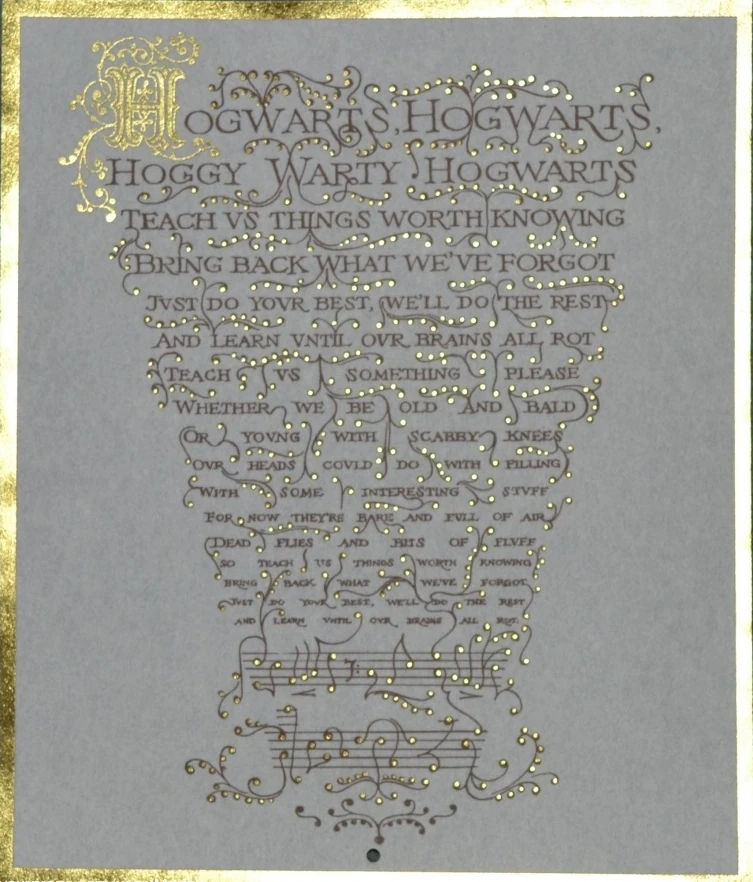 HOGWARTS, HOGWARTS,
HOGGY WARTY HOGWARTS
TEACH VS THINGS WORTH KNOWING
BRING BACK WHAT WE'VE FORGOT
JVST DO YOVR BEST, WE'LL DO THE REST
AND LEARN VNTIL OVR BRAINS ALL ROT
TEACH VS SOMETHING PLEASE
WHETHER WE BE OLD AND BALD
OR YOVNG WITH SCABBY KNEES
OVR HEADS COVLD DO WITH FILLING
WITH SOME INTERESTING STVFF
FOR NOW THEY'RE BARE AND FVLL OF AIR
DEAD FLIES AND BITS OF FLVFF
SO TEACH US THINGS WORTH KNOWING
BRING BACK WHAT WE'VE FORGOT
JVST DO YOVR BEST, WE'LL DO THE REST
AND LEARN VNTIL OVR BRAINS ALL ROT.